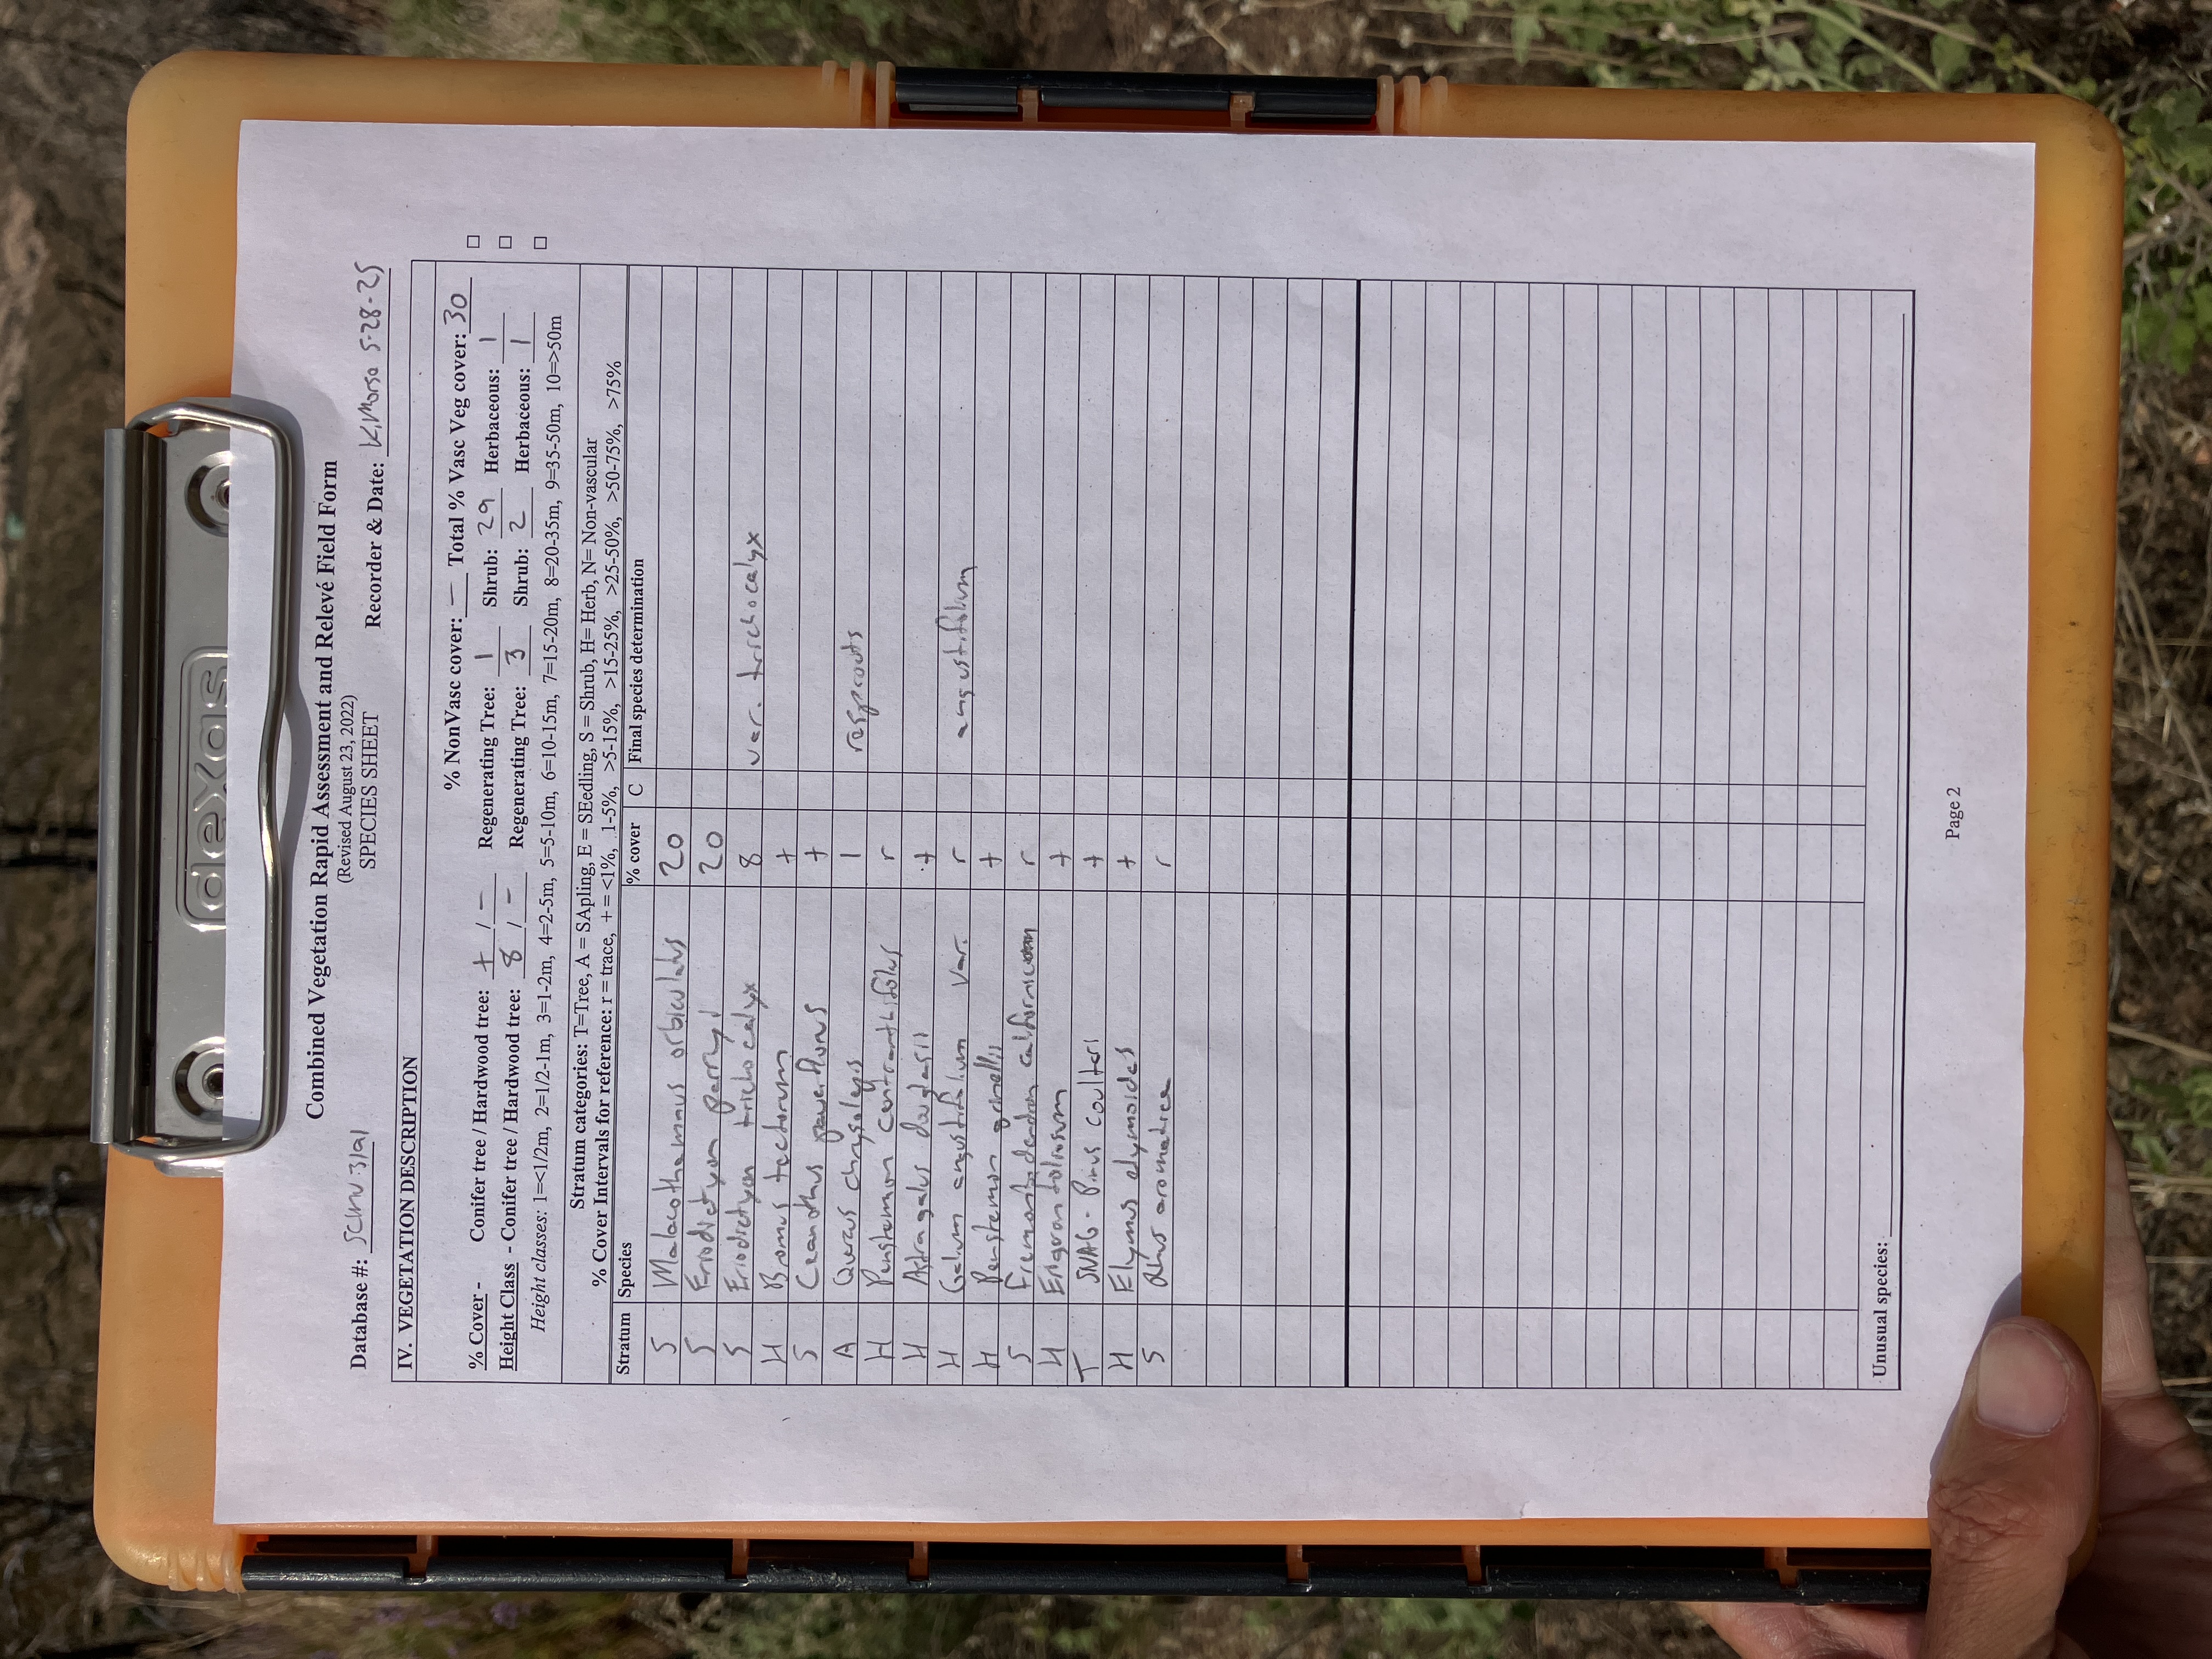 dexas
Combined Vegetation Rapid Assessment and Relevé Field Form
(Revised August 23, 2022)
SPECIES SHEET
Database #: Recorder & Date: K. Morse 5-28-25
IV. VEGETATION DESCRIPTION
% NonVasc cover: — Total % Vasc Veg cover: 30
% Cover - Conifer tree / Hardwood tree: + / - Regenerating Tree: 1 Shrub: 29 Herbaceous: 1 □
Height Class - Conifer tree / Hardwood tree: 8 / - Regenerating Tree: 3 Shrub: 2 Herbaceous: 1 □
Height classes: 1=<1/2m, 2=1/2-1m, 3=1-2m, 4=2-5m, 5=5-10m, 6=10-15m, 7=15-20m, 8=20-35m, 9=35-50m, 10=>50m □
Stratum categories: T=Tree, A = SApling, E = SEedling, S = Shrub, H= Herb, N= Non-vascular
% Cover Intervals for reference: r = trace, + = <1%, 1-5%, >5-15%, >15-25%, >25-50%, >50-75%, >75%
Stratum Species % cover C Final species determination
S Malacothamnus orbiculatus 20
S Eriodictyon parryi 20
S Eriodictyon trichocalyx 8 var. trichocalyx
H Bromus tectorum +
S Ceanothus +
A Quercus chrysolepis 1 resprouts
H Penstemon centranthifolius r
H Astragalus douglasii +
H Galium angustifolium var. r angustifolium
H Penstemon grinnellii +
S Fremontodendron californicum r
H Erigeron foliosum +
T SNAG - Pinus coulteri +
H Elymus elymoides +
S Rhus aromatica r
Unusual species:
Page 2